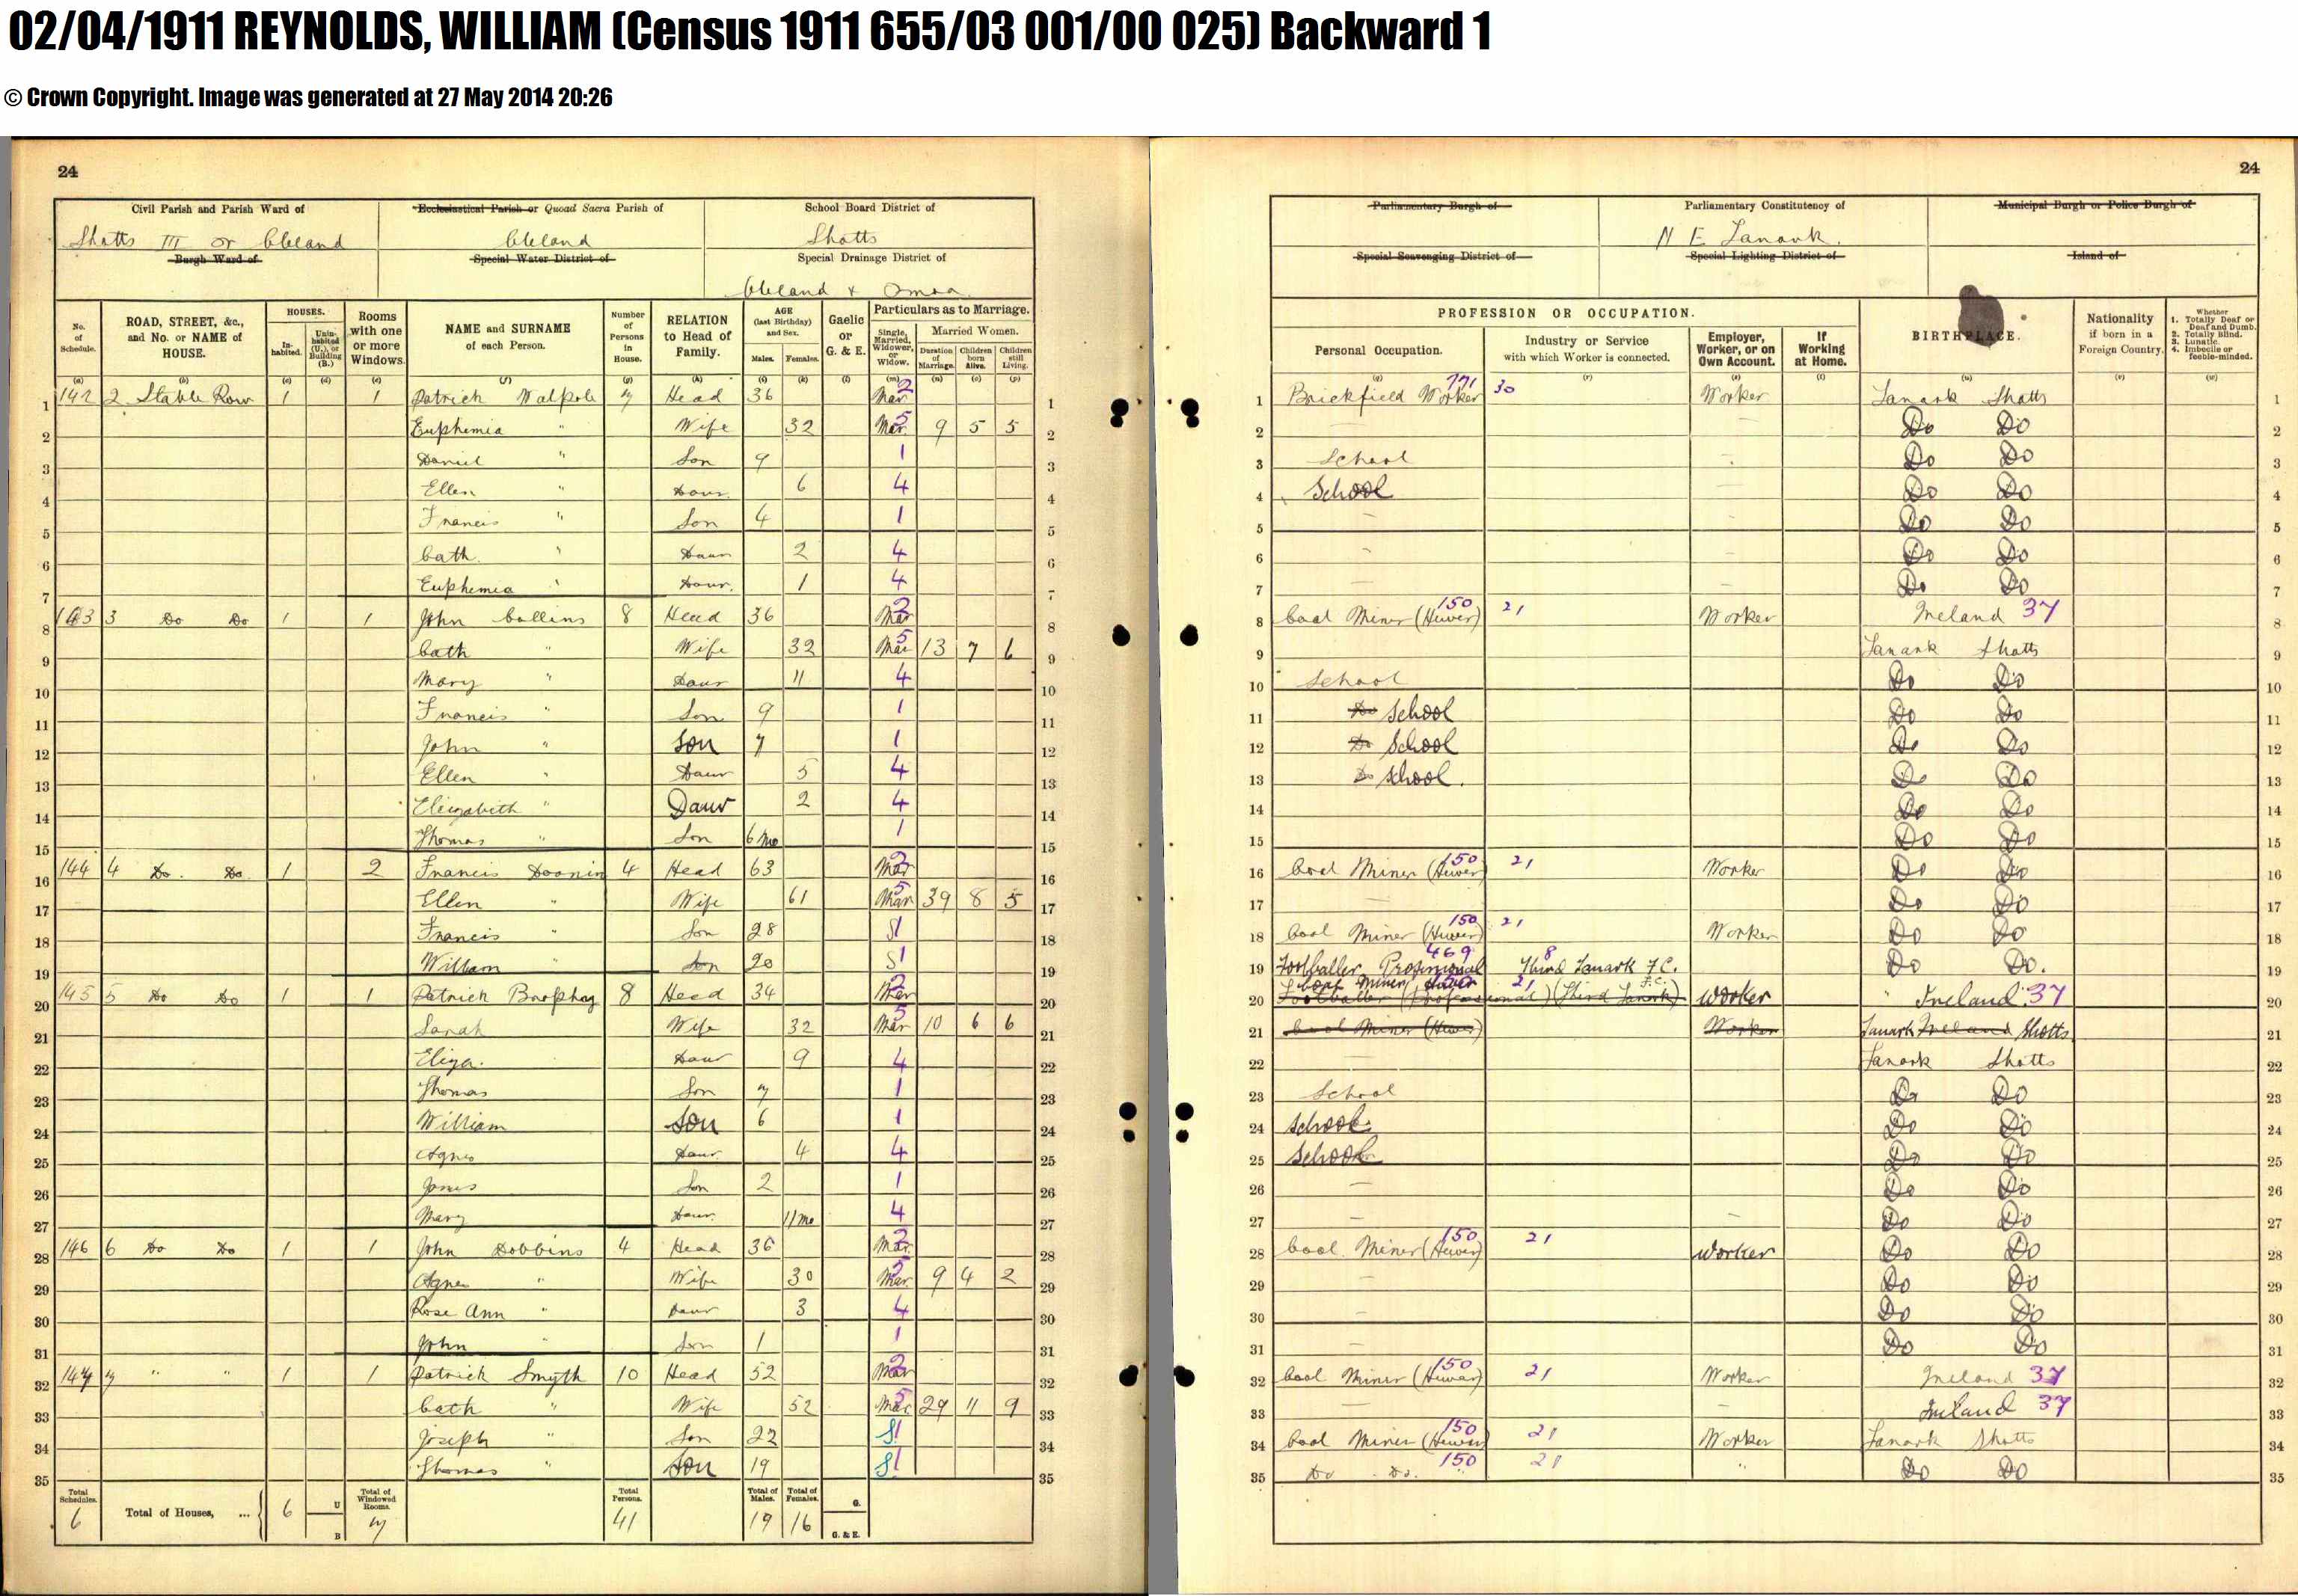 02/04/1911 REYNOLDS, WILLIAM (Census 1911 655/03 001/00 025) Backward 1
© Crown Copyright. Image was generated at 27 May 2014 20:26
24 24
Civil Parish and Parish Ward of Ecclesiastical Parish or Quoad Sacra Parish of School Board District of Parliamentary Burgh of Parliamentary Constitutency of Municipal Burgh or Police Burgh of
Shotts III or Cleland Cleland Shotts N E Lanark.
Burgh Ward of Special Water District of Special Drainage District of Special Scavenging District of Special Lighting District of Island of
Cleland + Omoa
No. of Schedule. ROAD, STREET, &c., and No. or NAME of HOUSE. HOUSES. Inhabited. Uninhabited (U.), or Building (B.) Rooms with one or more Windows. NAME and SURNAME of each Person. Number of Persons in House. RELATION to Head of Family. AGE (last Birthday) and Sex. Males. Females. Gaelic or G. & E. Particulars as to Marriage. Single, Married, Widower, or Widow. Married Women. Duration of Marriage. Children born Alive. Children still Living.
PROFESSION OR OCCUPATION. Personal Occupation. Industry or Service with which Worker is connected. Employer, Worker, or on Own Account. If Working at Home. BIRTHPLACE. Nationality if born in a Foreign Country. Whether 1. Totally Deaf or Deaf and Dumb. 2. Totally Blind. 3. Lunatic. 4. Imbecile or feeble-minded.
1 142 2 Stable Row 1 1 Patrick Walpole 7 Head 36 Mar 2 1 Brickfield Worker 771 30 Worker Lanark Shotts 1
2 Euphemia " Wife 32 Mar 5 9 5 5 2 Do Do 2
3 Daniel " Son 9 1 3 School Do Do 3
4 Ellen " Daur. 6 4 4 School Do Do 4
5 Francis " Son 4 1 5 Do Do 5
6 Cath. " Daur 2 4 6 Do Do 6
7 Euphemia " Daur. 1 4 7 Do Do 7
8 143 3 Do Do 1 1 John Collins 8 Head 36 Mar 2 8 Coal Miner (Hewer) 150 21 Worker Ireland 37 8
9 Cath " Wife 32 Mar 5 13 7 6 9 Lanark Shotts 9
10 Mary " Daur 11 4 10 School Do Do 10
11 Francis " Son 9 1 11 Do School Do Do 11
12 John " Son 7 1 12 Do School Do Do 12
13 Ellen " Daur 5 4 13 Do School. Do Do 13
14 Elizabeth " Daur 2 4 14 Do Do 14
15 Thomas " Son 6 mo 1 15 Do Do 15
16 144 4 Do. Do. 1 2 Francis Doonin 4 Head 63 Mar 2 16 Coal Miner (Hewer) 150 21 Worker Do Do 16
17 Ellen " Wife 61 Mar 5 39 8 5 17 Do Do 17
18 Francis " Son 28 S 1 18 Coal Miner (Hewer) 150 21 Worker Do Do 18
19 William " Son 20 S 1 19 Footballer Professional 469 8 Third Lanark F.C. Do Do. 19
20 145 5 Do Do 1 1 Patrick Brophay 8 Head 34 Mar 2 20 Coal Miner Hewer 21 Footballer (Professional) (Third Lanark) F.C. Worker Ireland 37 20
21 Sarah Wife 32 Mar 5 10 6 6 21 Coal Miner (Hewer) Worker Lanark Ireland Shotts 21
22 Eliza. Daur 9 4 22 Lanark Shotts 22
23 Thomas Son 7 1 23 School Do Do 23
24 William Son 6 1 24 School Do Do 24
25 Agnes Daur. 4 4 25 School Do Do 25
26 James Son 2 1 26 Do Do 26
27 Mary Daur. 11 mo 4 27 Do Do 27
28 146 6 Do Do 1 1 John Dobbins 4 Head 36 Mar. 2 28 Coal Miner (Hewer) 150 21 Worker Do Do 28
29 Agnes " Wife 30 Mar. 5 9 4 2 29 Do Do 29
30 Rose Ann " Daur 3 4 30 Do Do 30
31 John " Son 1 1 31 Do Do 31
32 147 7 " " 1 1 Patrick Smyth 10 Head 52 Mar 2 32 Coal Miner (Hewer) 150 21 Worker Ireland 37 32
33 Cath " Wife 52 Mar 5 29 11 9 33 Ireland 37 33
34 Joseph " Son 22 S 1 34 Coal Miner (Hewer) 150 21 Worker Lanark Shotts 34
35 Thomas " Son 19 S 1 35 Do Do. 150 21 " Do Do 35
Total Schedules. 6 Total of Houses, ... 6 U B Total of Windowed Rooms. 7 Total Persons. 41 Total of Males. 19 Total of Females. 16 G. G. & E.